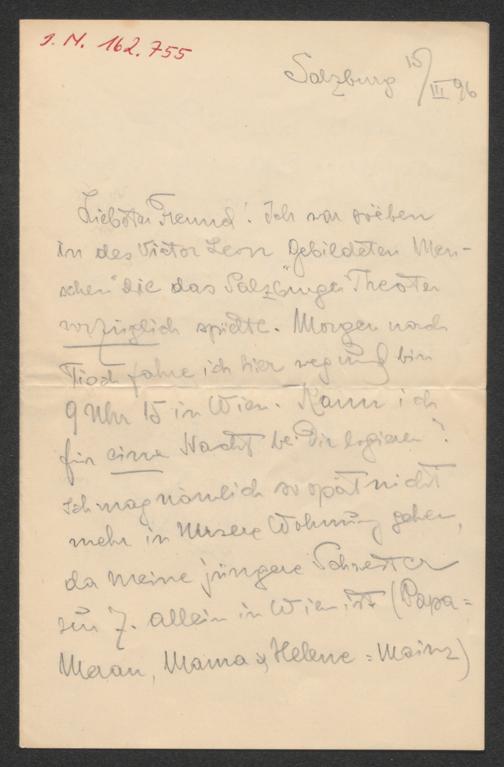 J. N. 162.755
Salzburg 15/III 96
Liebster Freund! Ich war soeben
in des Victor Leon „Gebildeten Men-
schen" die das Salzburger Theater
vorzüglich spielte. Morgen nach
Tisch fahre ich hier weg und bin
9 Uhr 15 in Wien. Kann ich
für eine Nacht bei Dir logieren?
Ich mag nämlich so spät nicht
mehr in unsere Wohnung gehen,
da meine jüngere Schwester
zur Z. allein in Wien ist (Papa =
Meran, Mama u. Helene = Mainz)